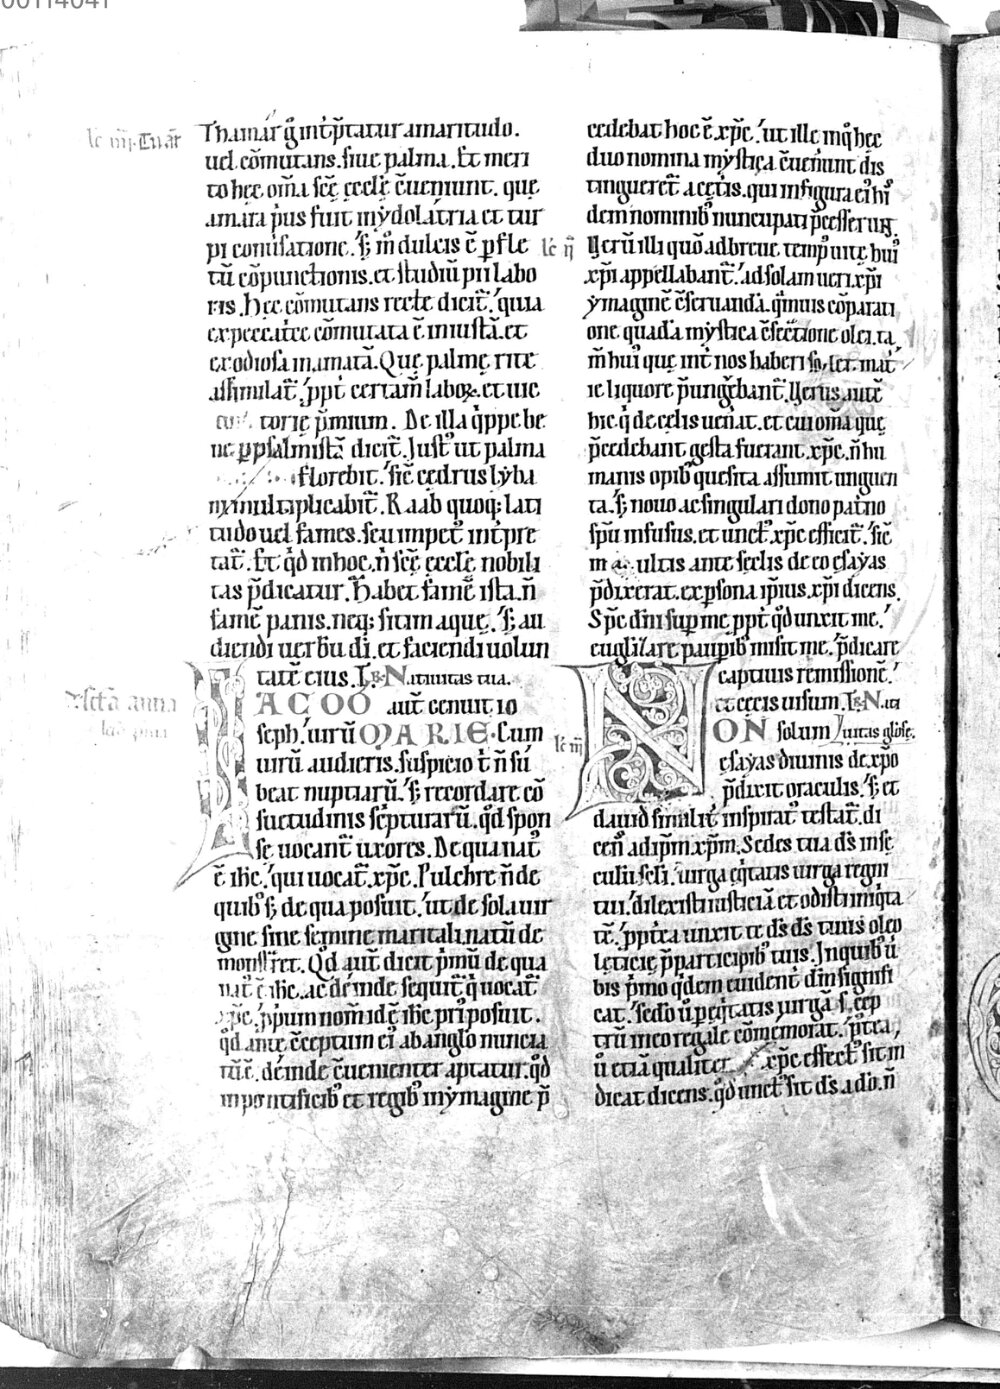 00114041
Thamar g̊ int͛p̄tatur amaritudo.
uel cōmutans. siue palma. Et meri
to hec om̄ia sc̄ę ęccl̄ę c̄ueniunt. quę
amara p̓us fuit in ẏdolatria et tur
pi conuersatione.
tū cōpunctionis. et studiū pii labo
ris. Hec cōmutans recte dicit᷑. quia
ex peccatrice cōmutata ē in iustā. et
ex odiosa in amatā. Quę palmę rite
assimilat᷑. ꝓpt͛ certam̄
torię p̄mium. De illa q̓ppe be
ne ꝑ psalmistā dicit᷑. Iustꝰ ut palma
florebit. sic̄ cedrus lẏba
ni multiplicabit᷑. Raab quoq; lati
tudo uel fames. seu impetꝰ int͛pre
tat᷑. Et qd̓ in hoc. n̄ sc̄ę ęccl̄ę nobili
tas p̄dicatur. Habet famē ista. n̄
famē panis. neq; sitim aquę. s; au
diendi uerbū dī. et faciendi uolun
tatē eius. Natiuitas tua.
IACOB aut̄ genuit io
seph. uirū MARIE. Cum
uirū audieris. suspicio t̄ n̄ su
beat nuptiarū. s; recordare cō
suetudinis sc̓pturarū. qd̓ spon
sę uocant᷑ uxores. De qua natꝰ
ē ihc̄. qui uocat᷑ xp̄c. Pulchre n̄ de
quibꝰ s; de qua posuit. ut de sola uir
gine sine semine maritali. natū de
monstret. Qd̓ aut̄ dicit p̓mū de qua
natꝰ ē ihc̄. ac deinde sequit᷑ q̓ uocat᷑
xp̄c. ꝓpum nom̄ id ē ihc̄ pri posuit.
qd̓ ante c̄ceptum ei ab anglo nuncia
tū ē. deinde c̄uenienter aptatur. qd̓
in pontificibꝰ et regibꝰ in ẏmagine p̄
cedebat hoc ē xp̄c. ut ille
duo nomina mẏstica c̄ueniunt dis
tingueret᷑ a cet͛is. qui in figura eiꝰ hiꝰ
dem nominibꝰ nuncupati p̄cesserunt.
Uerū illi quō ad breue tempꝰ uitę huiꝰ
xp̄i appellabant᷑. ad solam ueri xp̄i
ẏmaginē c̄seruandā. quis cōparati
one quadā mẏstica c̄sectione olei. ta
m̄ huiꝰ que int͛ nos haberi solet. mat͛
ie liquore p̄ungebant᷑. Uerus aut̄
hic q̓ de celis uenat. et cui om̄ia quę
p̄cedebant gesta fuerant. xp̄c. n̄ hu
manis opibꝰ quesita assumit unguen
ta. s; nouo ac singulari dono pat͛no
sp̄u infusus. et unctꝰ xp̄c efficit᷑. sic̄
multis ante sec̄lis de eo esaẏas
p̄dixerat. ex persona ipsius xp̄i dicens.
Sp̄c dn̄i super me ꝓpt͛ qd̓ unxit me.
euuḡlizare pauꝑibꝰ misit me. p̄dicare
captiuis remissionē.
et cecis uisum.
NON solum
esaẏas diuinis de xp̄o
p̄dixit oraculis. s; et
dauid similit͛ inspiratꝰ testat᷑. di
cen̄ ad ip̄m xp̄m. Sedes tua dš in sę
culū seculi. uirga eq̓tatis uirga regni
tui. dilexisti iusticiā et odisti iniq̓ta
tē. ꝓpt͛ea unxit te dš dš tuus oleo
leticię p̄ participibꝰ tuis. In quibꝰ u͛
bis p̓mo q̓dem euident͛ dn̄m signifi
cat. sedō u͛ ꝑ eq̓tatis uirgā s. cep
trū in eo regale cōmemorat. p̓t͛ea,
u͛ etiā qualiter xp̄c effectꝰ sit in
dicat dicens. qd̓ unctꝰ sit dš a do̅. n̄